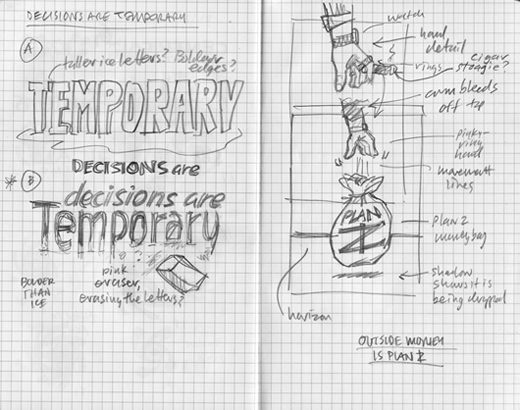 DECISIONS ARE TEMPORARY
A
taller ice letters? Bolder
edges?
TEMPORARY
DECISIONS are
* B
decisions are
Temporary
BOLDER
THAN
ICE
pink
eraser,
erasing the letters?
watch
hand
detail
rings
cigar
stogie?
arm bleeds
off top
pinky-
ring
hand
movement
lines
PLAN
Z
PLAN Z
moneybag
shadow
shows it is
being dropped
horizon
OUTSIDE MONEY
IS PLAN Z